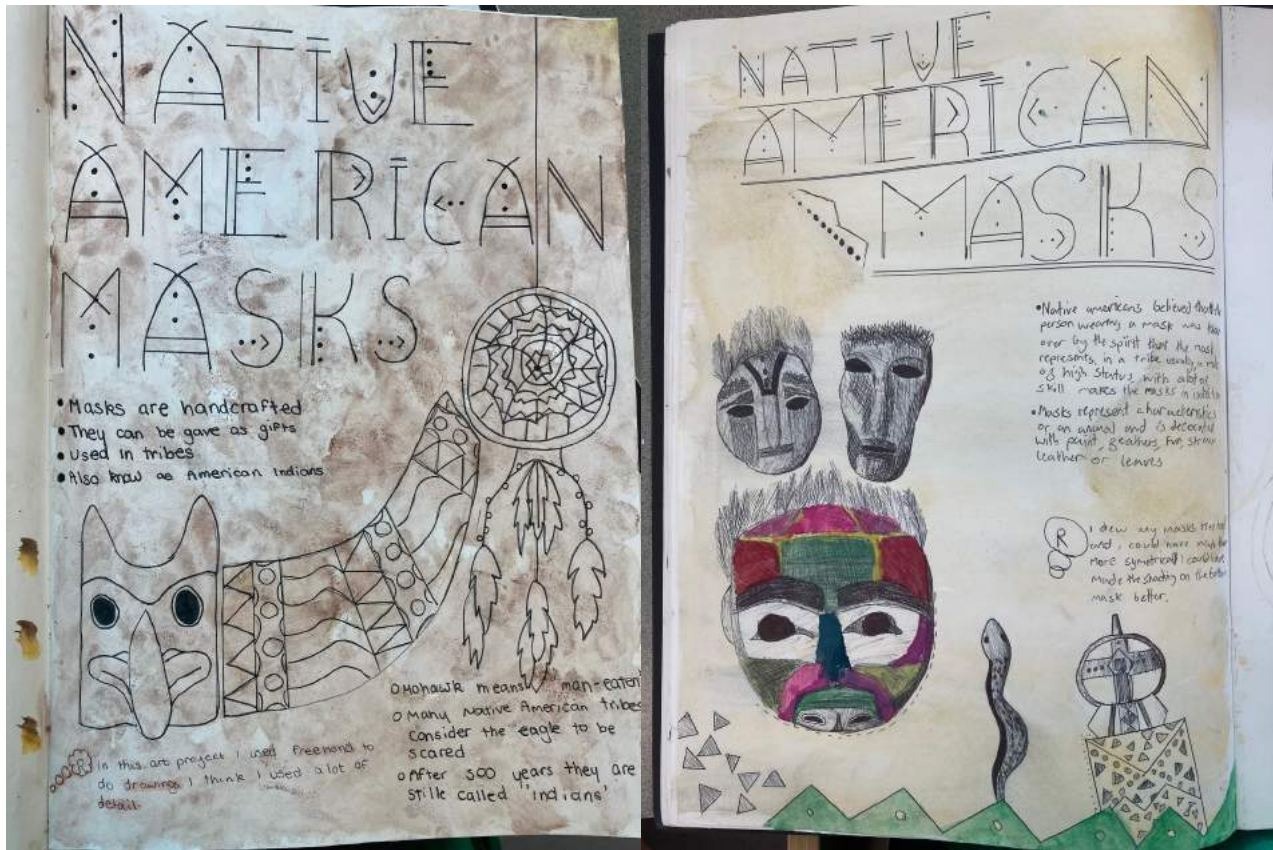 NATIVE
AMERICAN
MASKS
• Masks are handcrafted
• They can be gave as gifts
• Used in tribes
• Also know as American Indians
O Mohawk means man-eaten
O Many Native American tribes
consider the eagle to be
scared
O After 500 years they are
stille called "indians"
R In this art project I used freehand to
do drawings I think I used a lot of
detail.
NATIVE
AMERICAN
MASKS
• Native americans believed that
person wearing a mask was
over by the spirit that the mask
represents, in a tribe usually a
of high status with alot of
skill makes the masks in
• Masks represent characteristics
or an animal and is decorated
with paint, feathers, fur, straw
leather or leaves
R I drew my masks
and i could have made
more symetrical I could
made the shading on the
mask better.